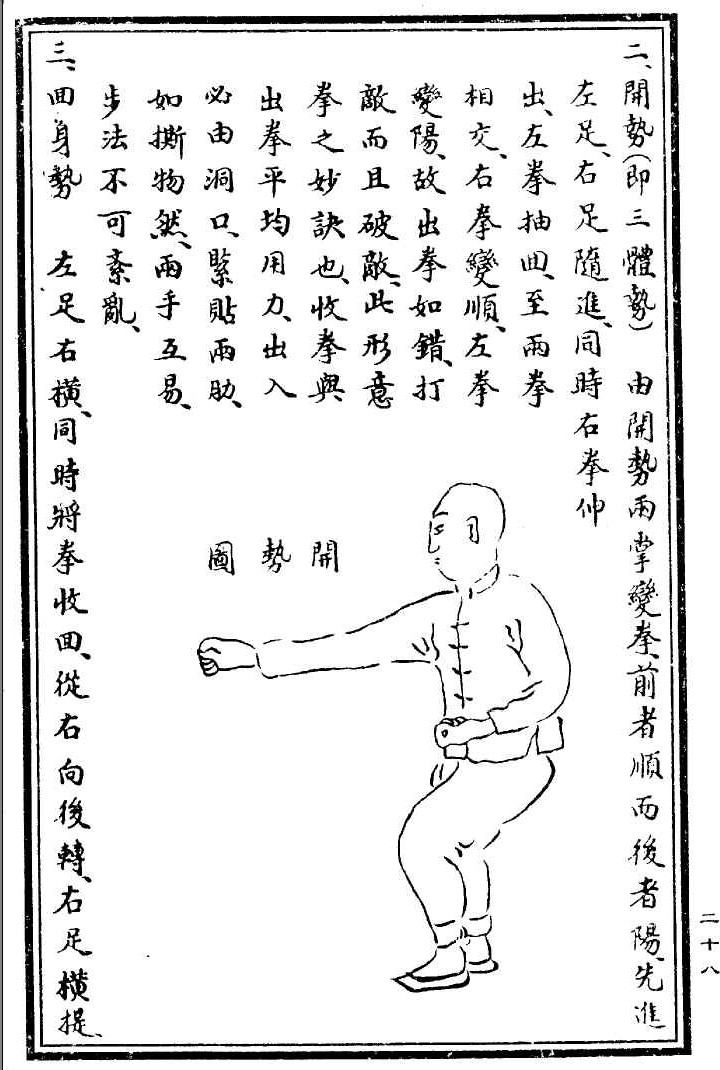 二、開勢(即三體勢) 由開勢兩掌變拳、前者順而後者陽、先進
左足、右足隨進、同時右拳伸
出、左拳抽回、至兩拳
相交、右拳變順、左拳
變陽、故出拳如錯、打
敵而且破敵、此形意
拳之妙訣也、收拳與
出拳平均用力、出入
必由洞口、緊貼兩肋、
如撕物然、兩手互易、
步法不可紊亂、
三、回身勢 左足右橫、同時將拳收回、從右向後轉、右足橫提、
開勢圖
二十八